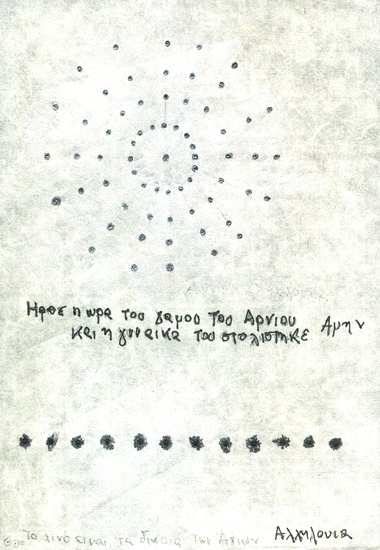 Ηρθε η ωρα του γαμου του Αρνιου Αμην
και η γυναικα του στολιστηκε
το λινο ειναι τα δικαια των Αγιων Αλληλουια